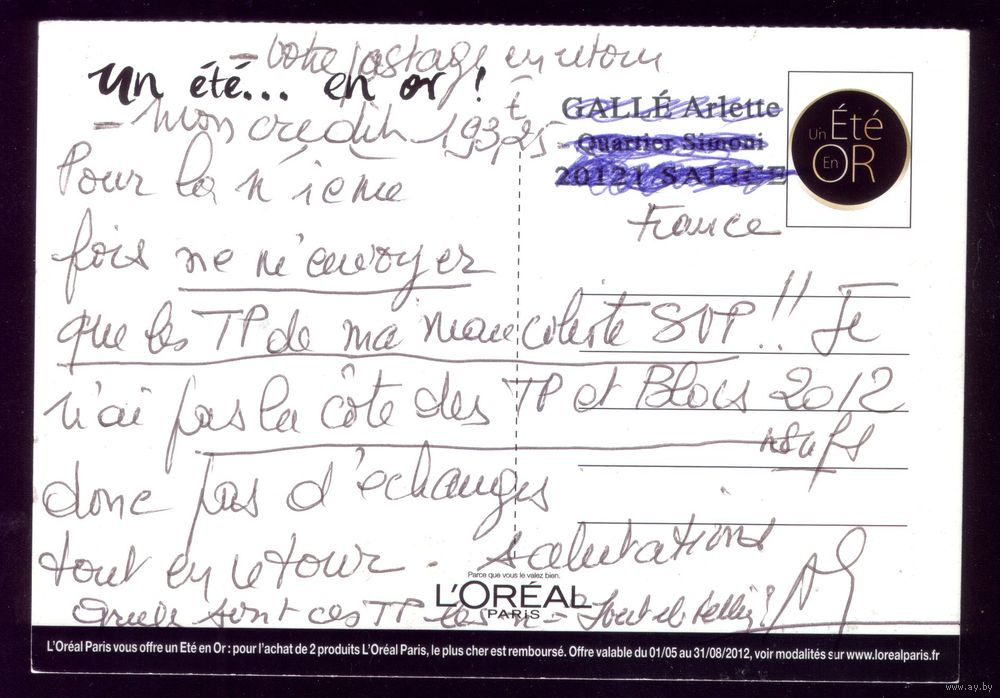 - Votre postage en retour
Un été... en or !
- Mon crédit 193,25
GALLÉ Arlette
Quartier Simoni
20121 SALICE
France
Un Été
En OR
Pour la nième
fois ne m'envoyer
que les TP de ma mancoliste SVP!! Je
n'ai pas la côte des TP et Blocs 2012
neufs
donc pas d'échanges
tout en retour. Salutations
Parce que vous le valez bien.
L'ORÉAL
PARIS
Quels sont ces TP les n°
L'Oréal Paris vous offre un Eté en Or : pour l'achat de 2 produits L'Oréal Paris, le plus cher est remboursé. Offre valable du 01/05 au 31/08/2012, voir modalités sur www.lorealparis.fr
www.ay.by